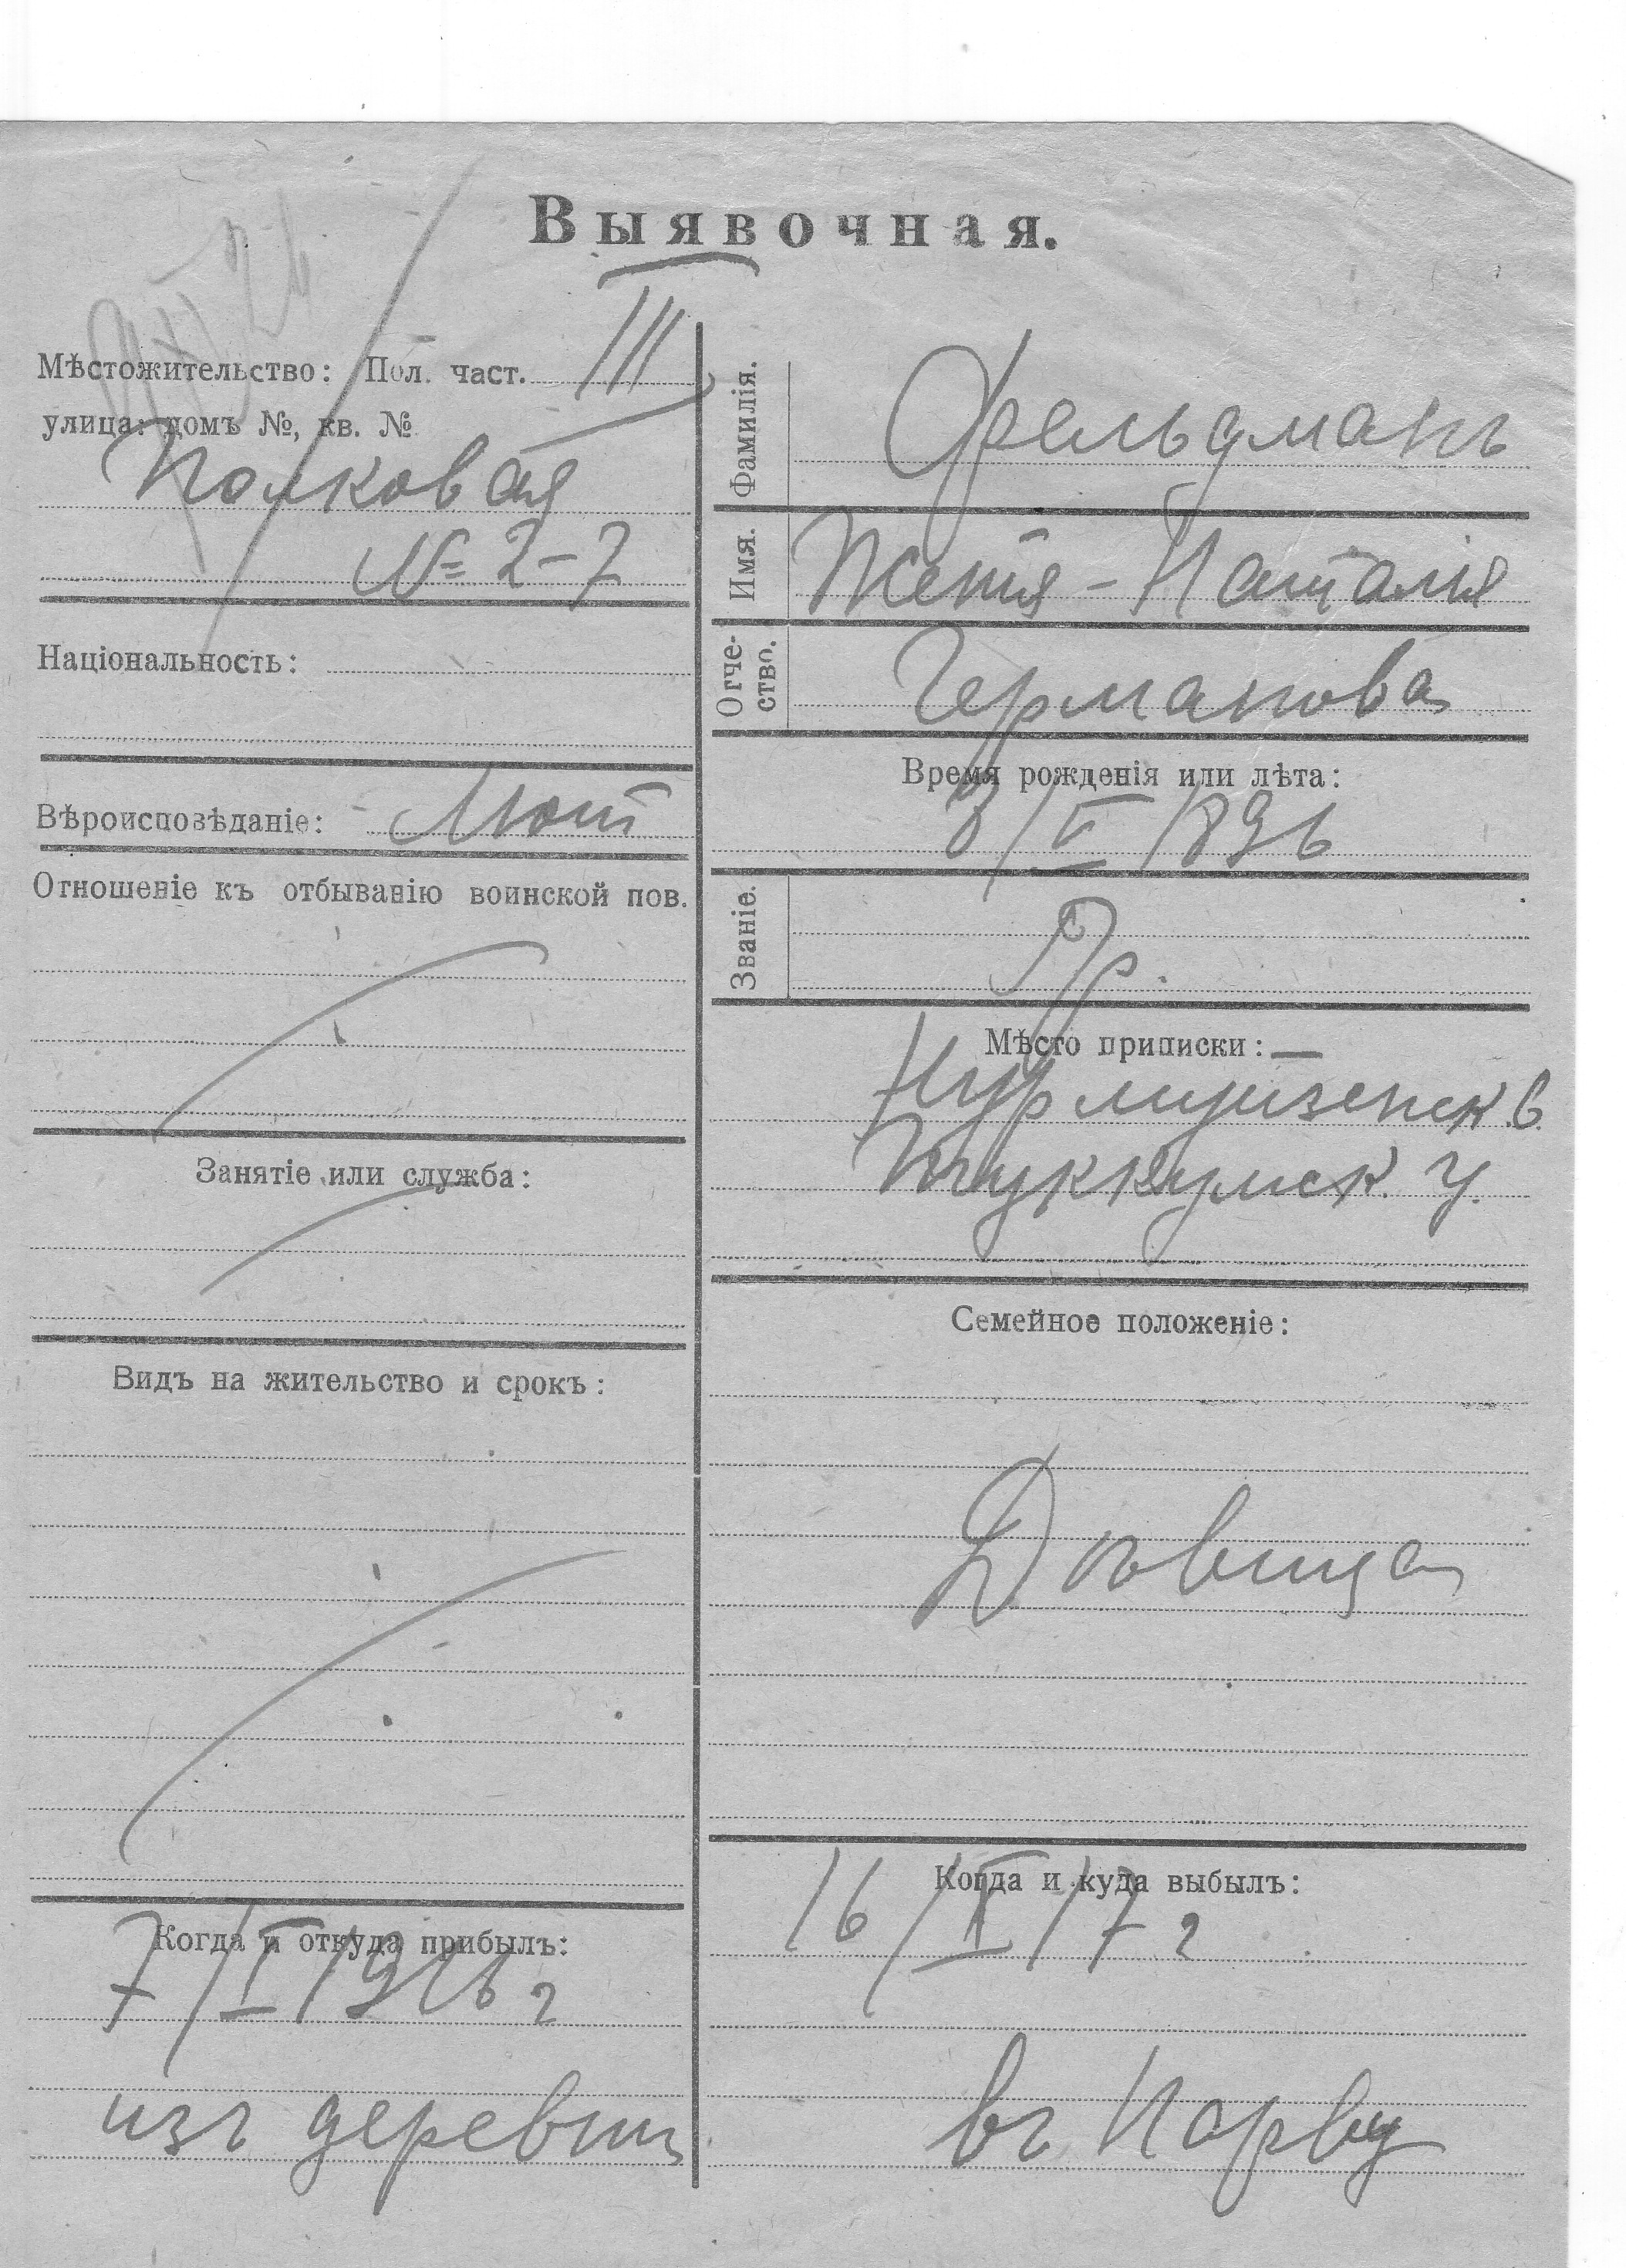 Выявочная.
Мѣстожительство: Пол. част. III
улица: домъ №, кв. №
Полковая
№ 2-7
Національность:
Вѣроисповѣданіе: Лют
Отношеніе къ отбыванію воинской пов.
Занятіе или служба:
Видъ на жительство и срокъ:
Когда и откуда прибылъ:
7/I 1916 г
изъ деревни
Фамилія. Фельдманъ
Имя. Жетя-Наталія
Отче-
ство. Германова
Время рожденія или лѣта:
3/V 1896
Званіе. Кр.
Мѣсто приписки:
Нурмуйзенск. в.
Туккумск. у.
Семейное положеніе:
Дѣвица
Когда и куда выбылъ:
16/II 17 г
въ Нарву